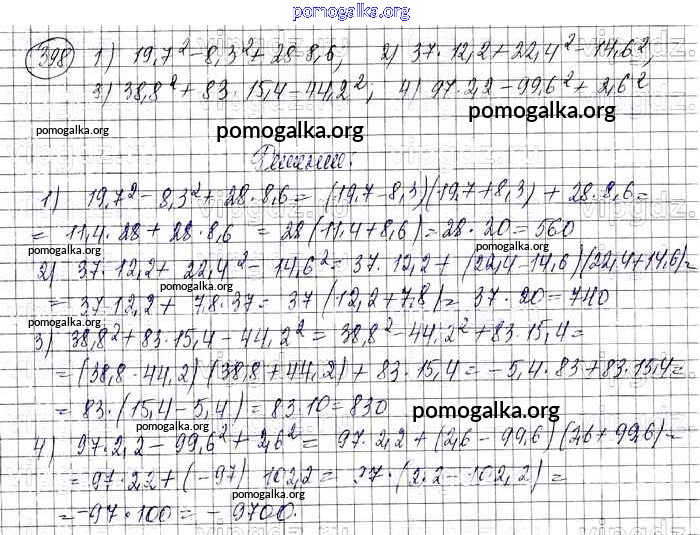 pomogalka.org
398 1) 19,7² - 8,3² + 28·8,6; 2) 37·12,2 + 22,4² - 14,6²;
3) 38,8² + 83·15,4 - 44,2²; 4) 97·2,2 - 99,6² + 2,6²
pomogalka.org pomogalka.org pomogalka.org
1) 19,7² - 8,3² + 28·8,6 = (19,7 - 8,3)(19,7 + 8,3) + 28·8,6 =
= 11,4·28 + 28·8,6 = 28(11,4 + 8,6) = 28·20 = 560
pomogalka.org pomogalka.org pomogalka.org
2) 37·12,2 + 22,4² - 14,6² = 37·12,2 + (22,4 - 14,6)(22,4 + 14,6) =
= 37·12,2 + 7,8·37 = 37(12,2 + 7,8) = 37·20 = 740
pomogalka.org
3) 38,8² + 83·15,4 - 44,2² = 38,8² - 44,2² + 83·15,4 =
= (38,8 - 44,2)(38,8 + 44,2) + 83·15,4 = -5,4·83 + 83·15,4 =
= 83·(15,4 - 5,4) = 83·10 = 830
pomogalka.org
4) 97·2,2 - 99,6² + 2,6² = 97·2,2 + (2,6 - 99,6)(2,6 + 99,6) =
pomogalka.org
= 97·2,2 + (-97)·102,2 = 97·(2,2 - 102,2) =
pomogalka.org
= -97·100 = -9700.